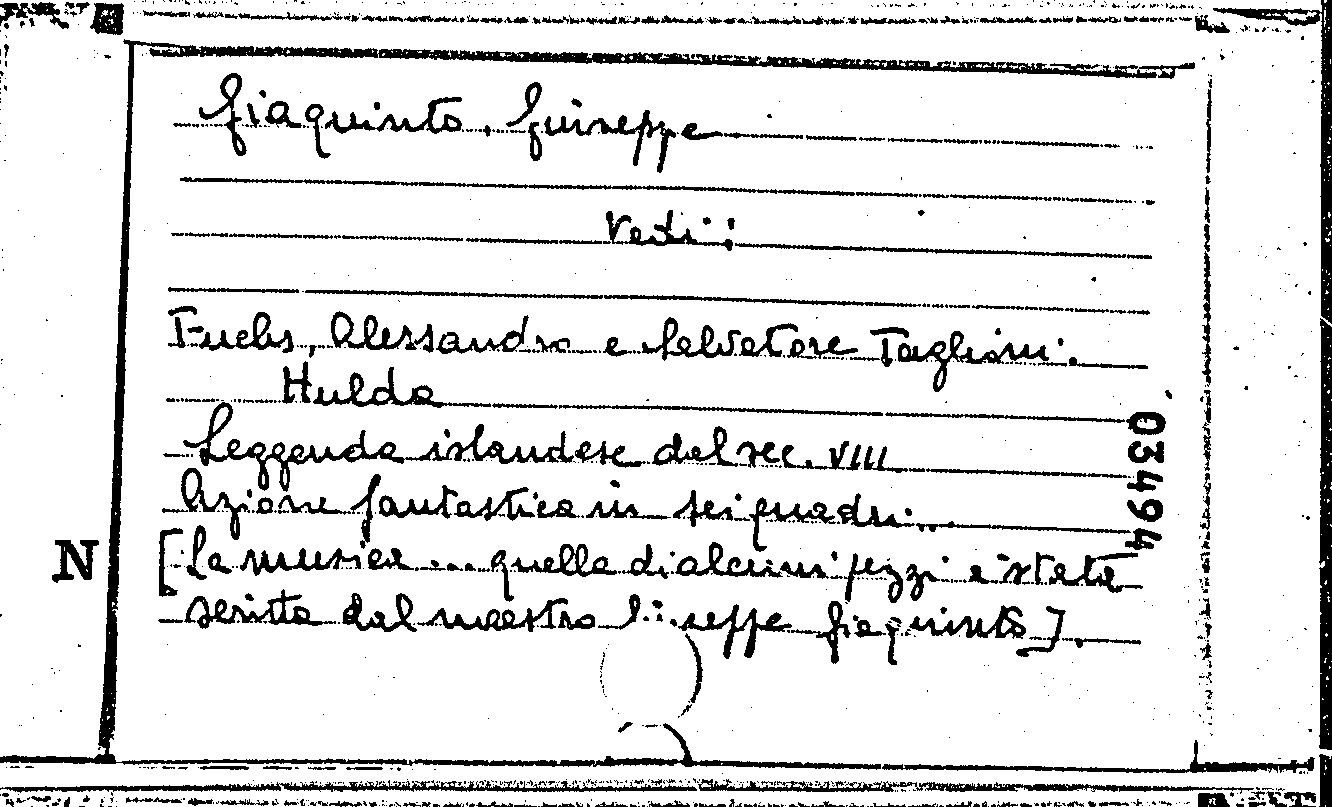 Giaquinto, Giuseppe
Vedi:
Fuchs, Alessandro e Salvatore Taglioni.
Hulda
Leggenda islandese del sec. VIII
Azione fantastica in sei quadri...
[La musica ... quella di alcuni pezzi è stata
scritta dal maestro Giuseppe Giaquinto].
03494
N